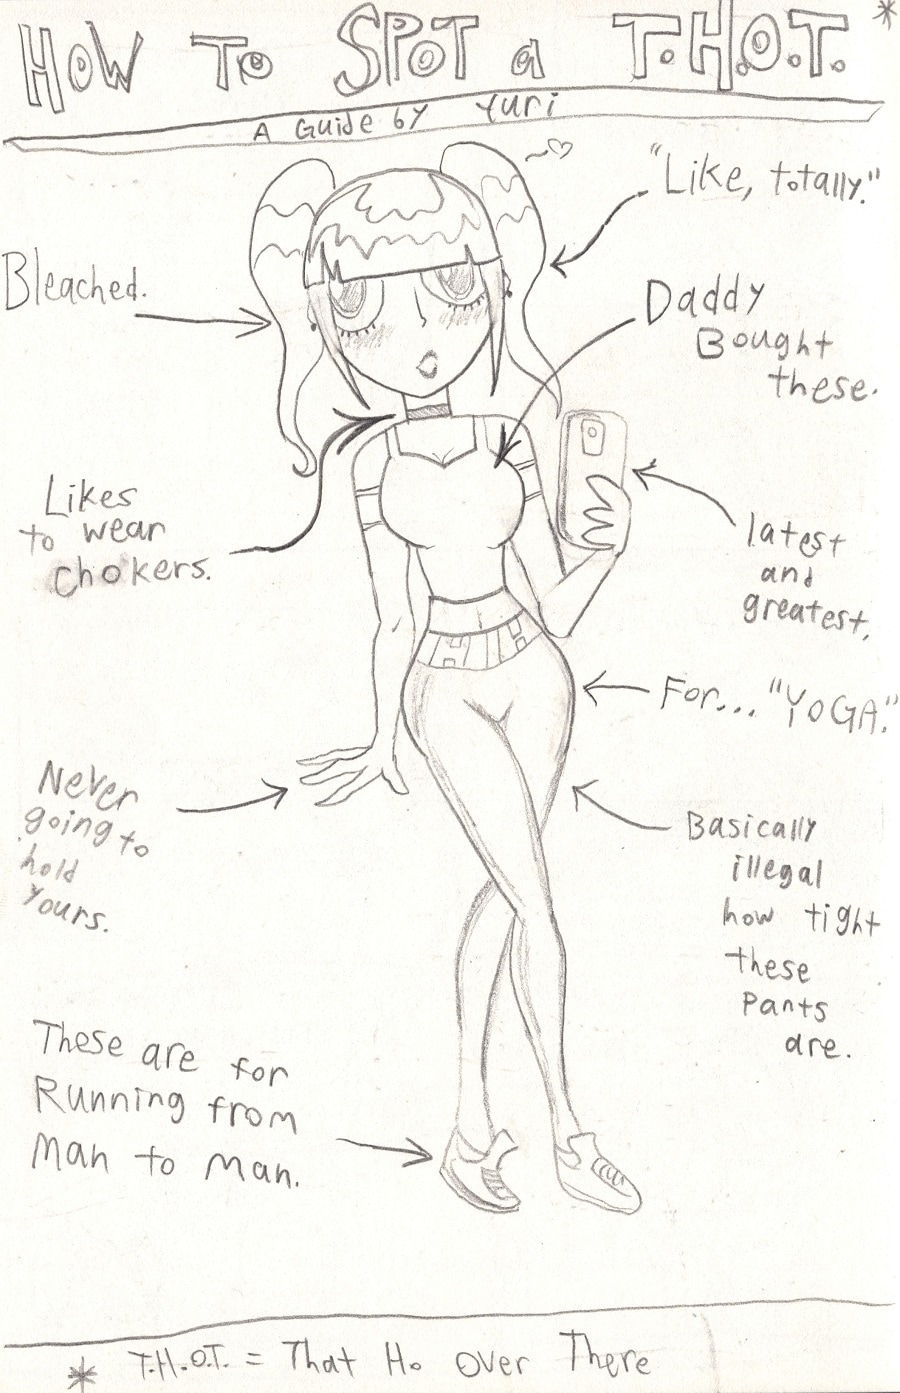 HOW TO SPOT a T.H.O.T. *
A Guide by Yuri
"Like, totally."
Bleached.
Daddy
Bought
these.
Likes
to wear
chokers.
latest
and
greatest.
For... "YOGA."
Never
going to
hold
yours.
Basically
illegal
how tight
these
pants
are.
These are for
Running from
Man to Man.
* T.H.O.T. = That Ho Over There